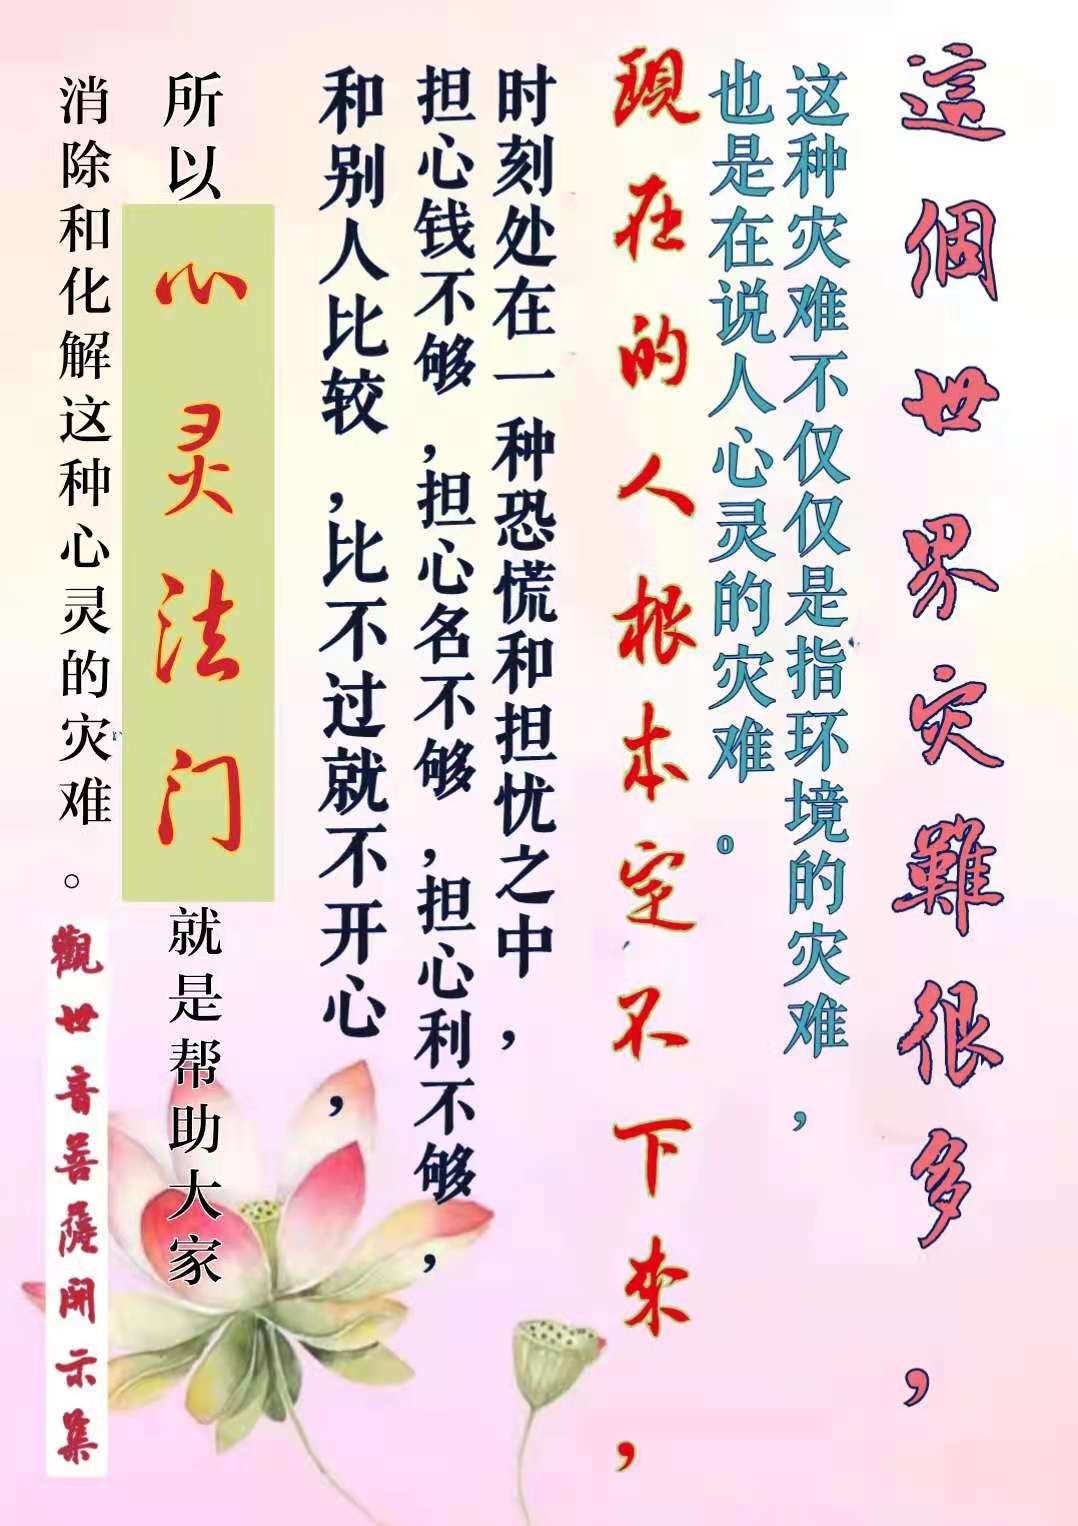 這個世界灾難很多，
这种灾难不仅仅是指环境的灾难，
也是在说人心灵的灾难。
現在的人根本定不下来，
时刻处在一种恐慌和担忧之中，
担心钱不够，担心名不够，担心利不够，
和别人比较，比不过就不开心，
所以心灵法门就是帮助大家
消除和化解这种心灵的灾难。
觀世音菩薩開示集